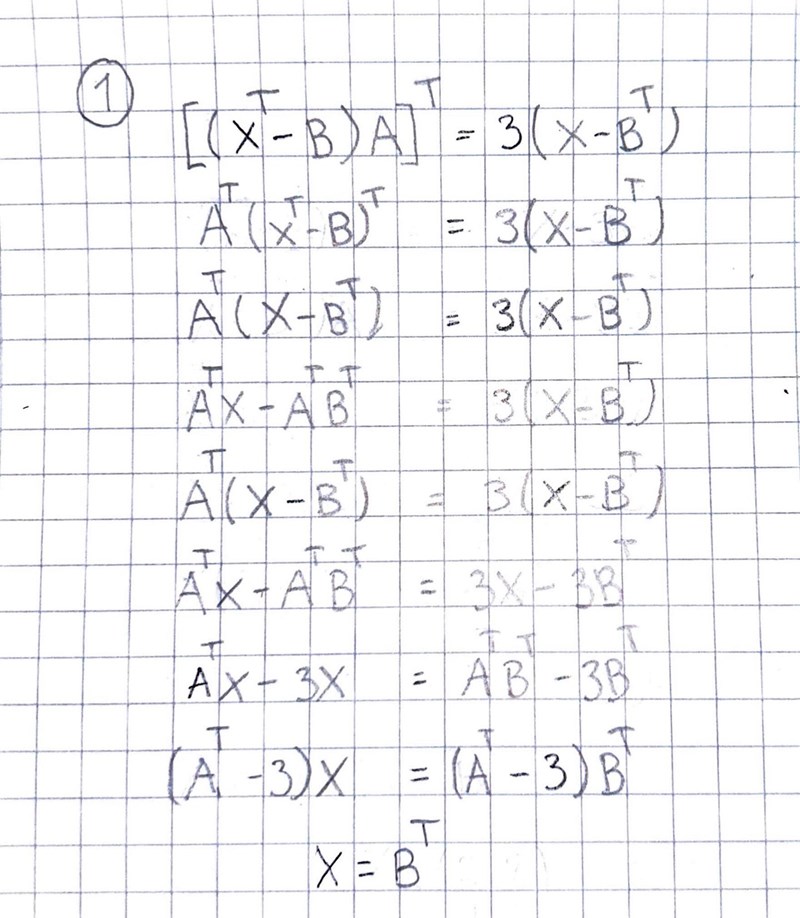 ①
[(Xᵀ-B)A]ᵀ = 3(X-Bᵀ)
Aᵀ(Xᵀ-B)ᵀ = 3(X-Bᵀ)
Aᵀ(X-Bᵀ) = 3(X-Bᵀ)
AᵀX-AᵀBᵀ = 3(X-Bᵀ)
Aᵀ(X-Bᵀ) = 3(X-Bᵀ)
AᵀX-AᵀBᵀ = 3X-3Bᵀ
AᵀX-3X = AᵀBᵀ-3Bᵀ
(Aᵀ-3)X = (Aᵀ-3)Bᵀ
X = Bᵀ